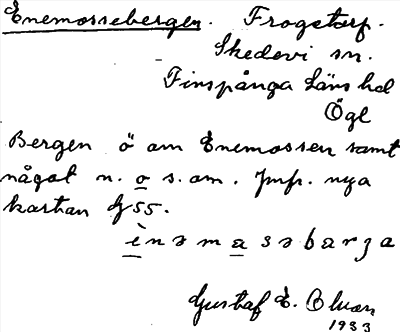 Enemossebergen. Frogstorp.
Skedevi sn.
Finspånga Läns hd
Ögl
Bergen ö om Enemossen samt
något n. o s. om. Jmf. nya
kartan
ènəmasəbarja
Gustaf E. Olson
1933